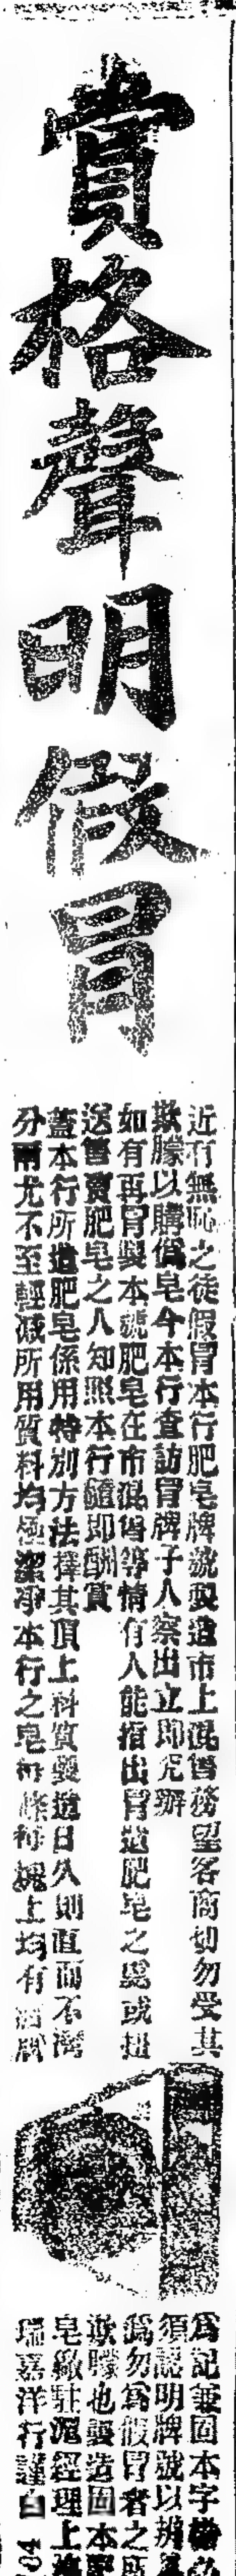 賞格聲明假冒
近有無恥之徒假冒本行肥皂牌號製造市上混售務望客商切勿受其
欺朦以購僞皂今本行查訪冒牌子人察出立即究辦
如有再冒製本號肥皂在市混售等情有人能指出冒造肥皂之處或扭
送售賣肥皂之人知照本行隨即酬賞
蓋本行所造肥皂係用特別方法擇其頂上料質製造日久則直而不灣
分兩尤不至輕減所用質料均極潔凈本行之皂每條每塊上均有
爲記兼固本字樣
須認明牌號以辨
僞勿爲假冒者之所
欺朦也製造固本
皂廠駐滬經理上海
瑞嘉洋行謹白